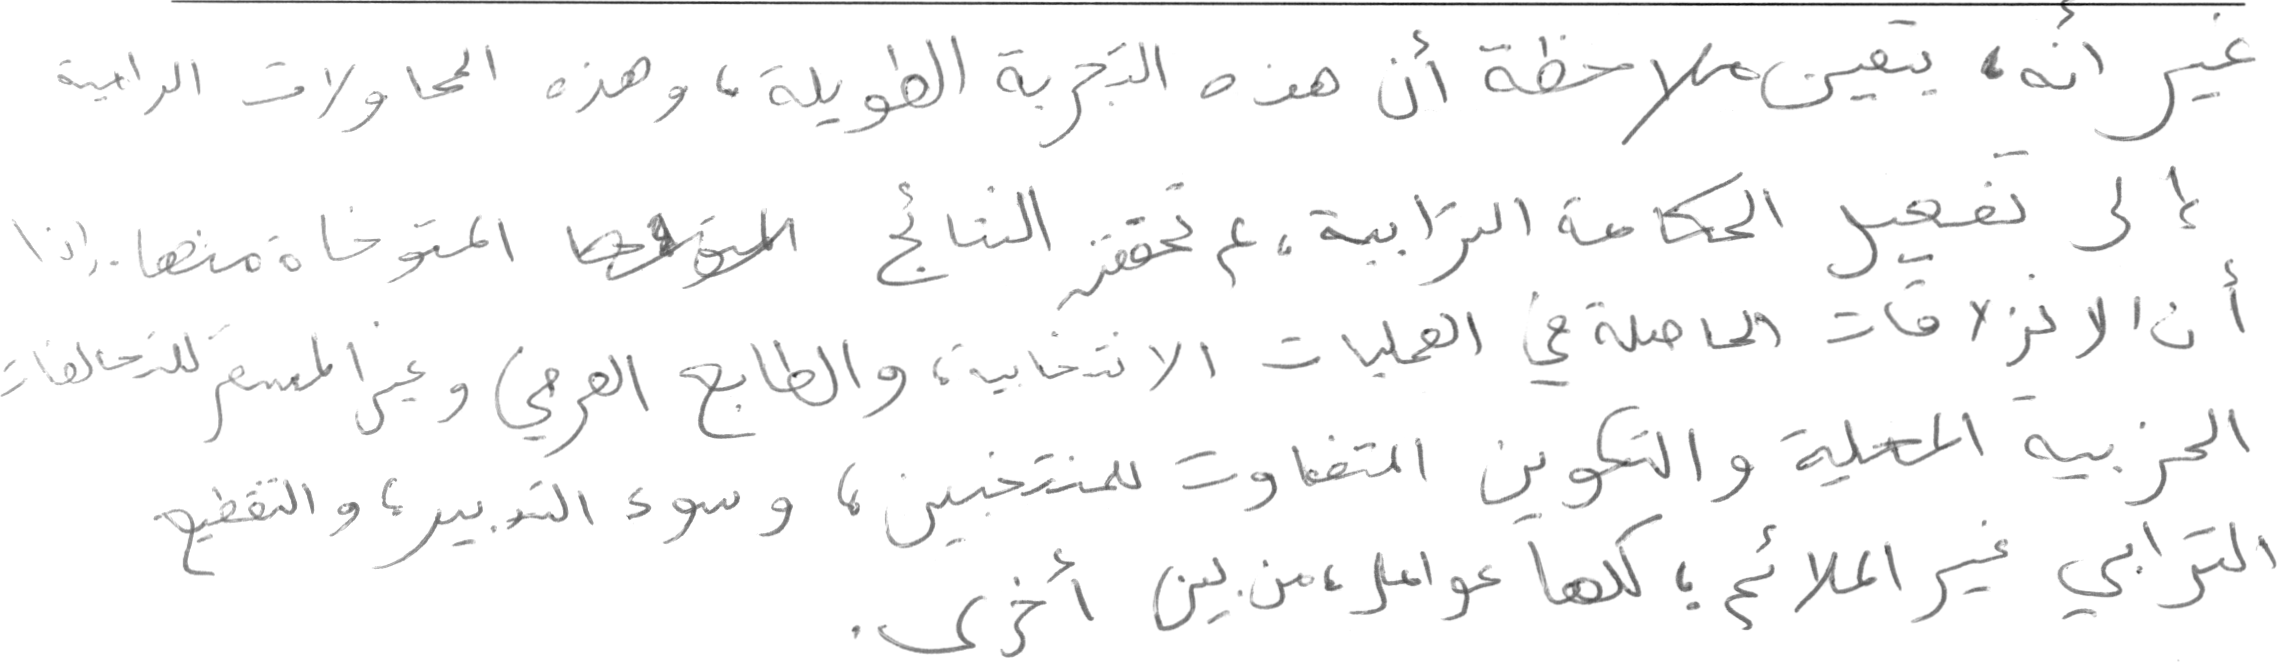 غير أنه، يتعين ملاحظة أن هذه التجربة الطويلة، وهذه المحاولات الرامية
إلى تفعيل الحكامة الترابية، لم تحقق النتائج المتوخاة منها. إذا
أن الانزلاقات الحاصلة في العمليات الانتخابية، والطابع العرضي وغير المستقر للتحالفات
الحزبية المحلية والتكوين المتفاوت للمنتخبين، وسوء التدبير، والتقطيع
الترابي غير الملائم، كلها عوامل، من بين أخرى.